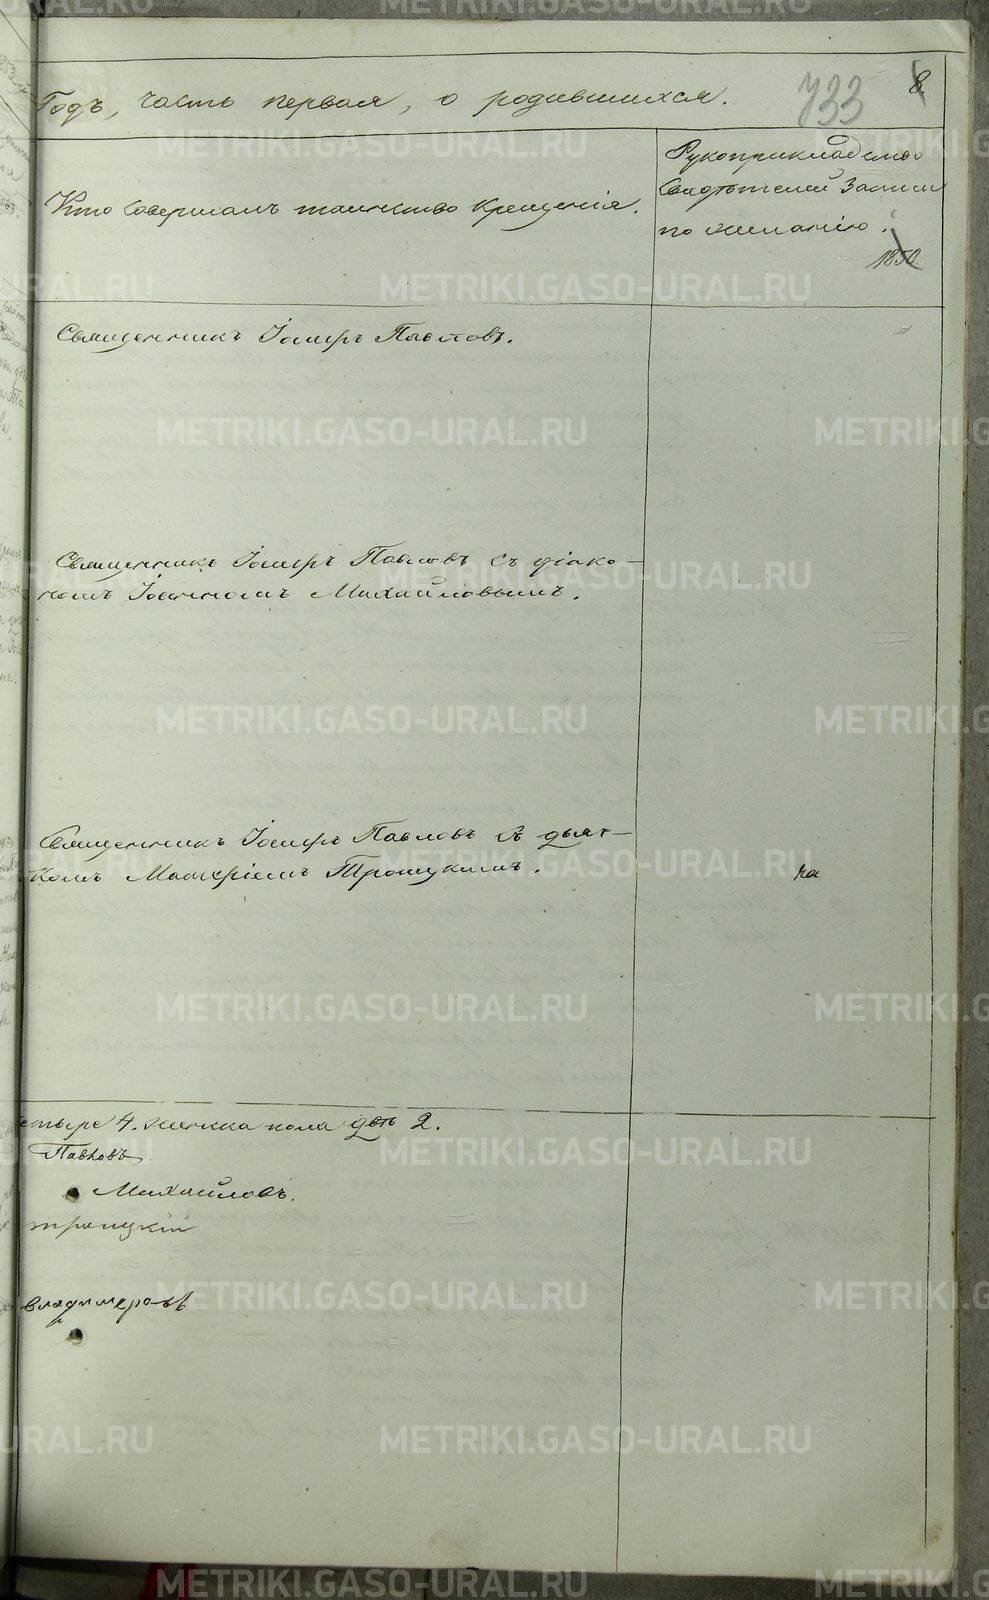 Годъ, часть первая, о родившихся.
733
8.
Кто совершалъ таинство крещенія.
Рукоприкладство
свидѣтелей записи
по желанію.
1850.
Священникъ Іосифъ Павловъ.
Священникъ Іосифъ Павловъ съ діако-
номъ Іоанномъ Михайловымъ.
Священникъ Іосифъ Павловъ съ дьяч-
комъ Троицкимъ.
на
етыре 4. женска пола двѣ 2.
Павловъ
Михайловъ.
троицкій
владимеровъ
METRIKI.GASO-URAL.RU